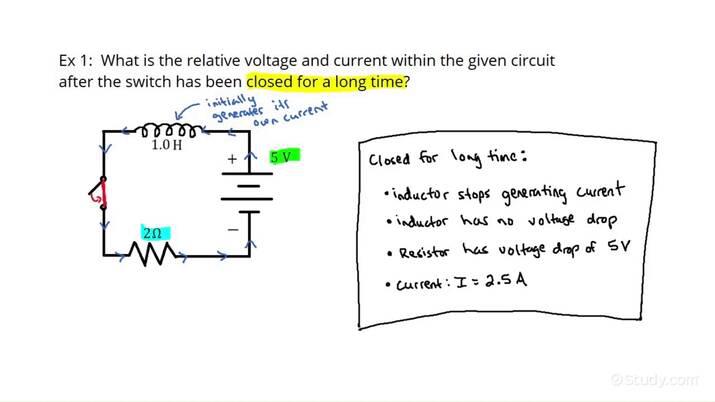 Ex 1: What is the relative voltage and current within the given circuit
after the switch has been closed for a long time?
initially
generates its
own current
1.0 H
+
5 V
2Ω
−
Closed for long time:
• inductor stops generating current
• inductor has no voltage drop
• Resistor has voltage drop of 5V
• Current: I = 2.5 A
Study.com